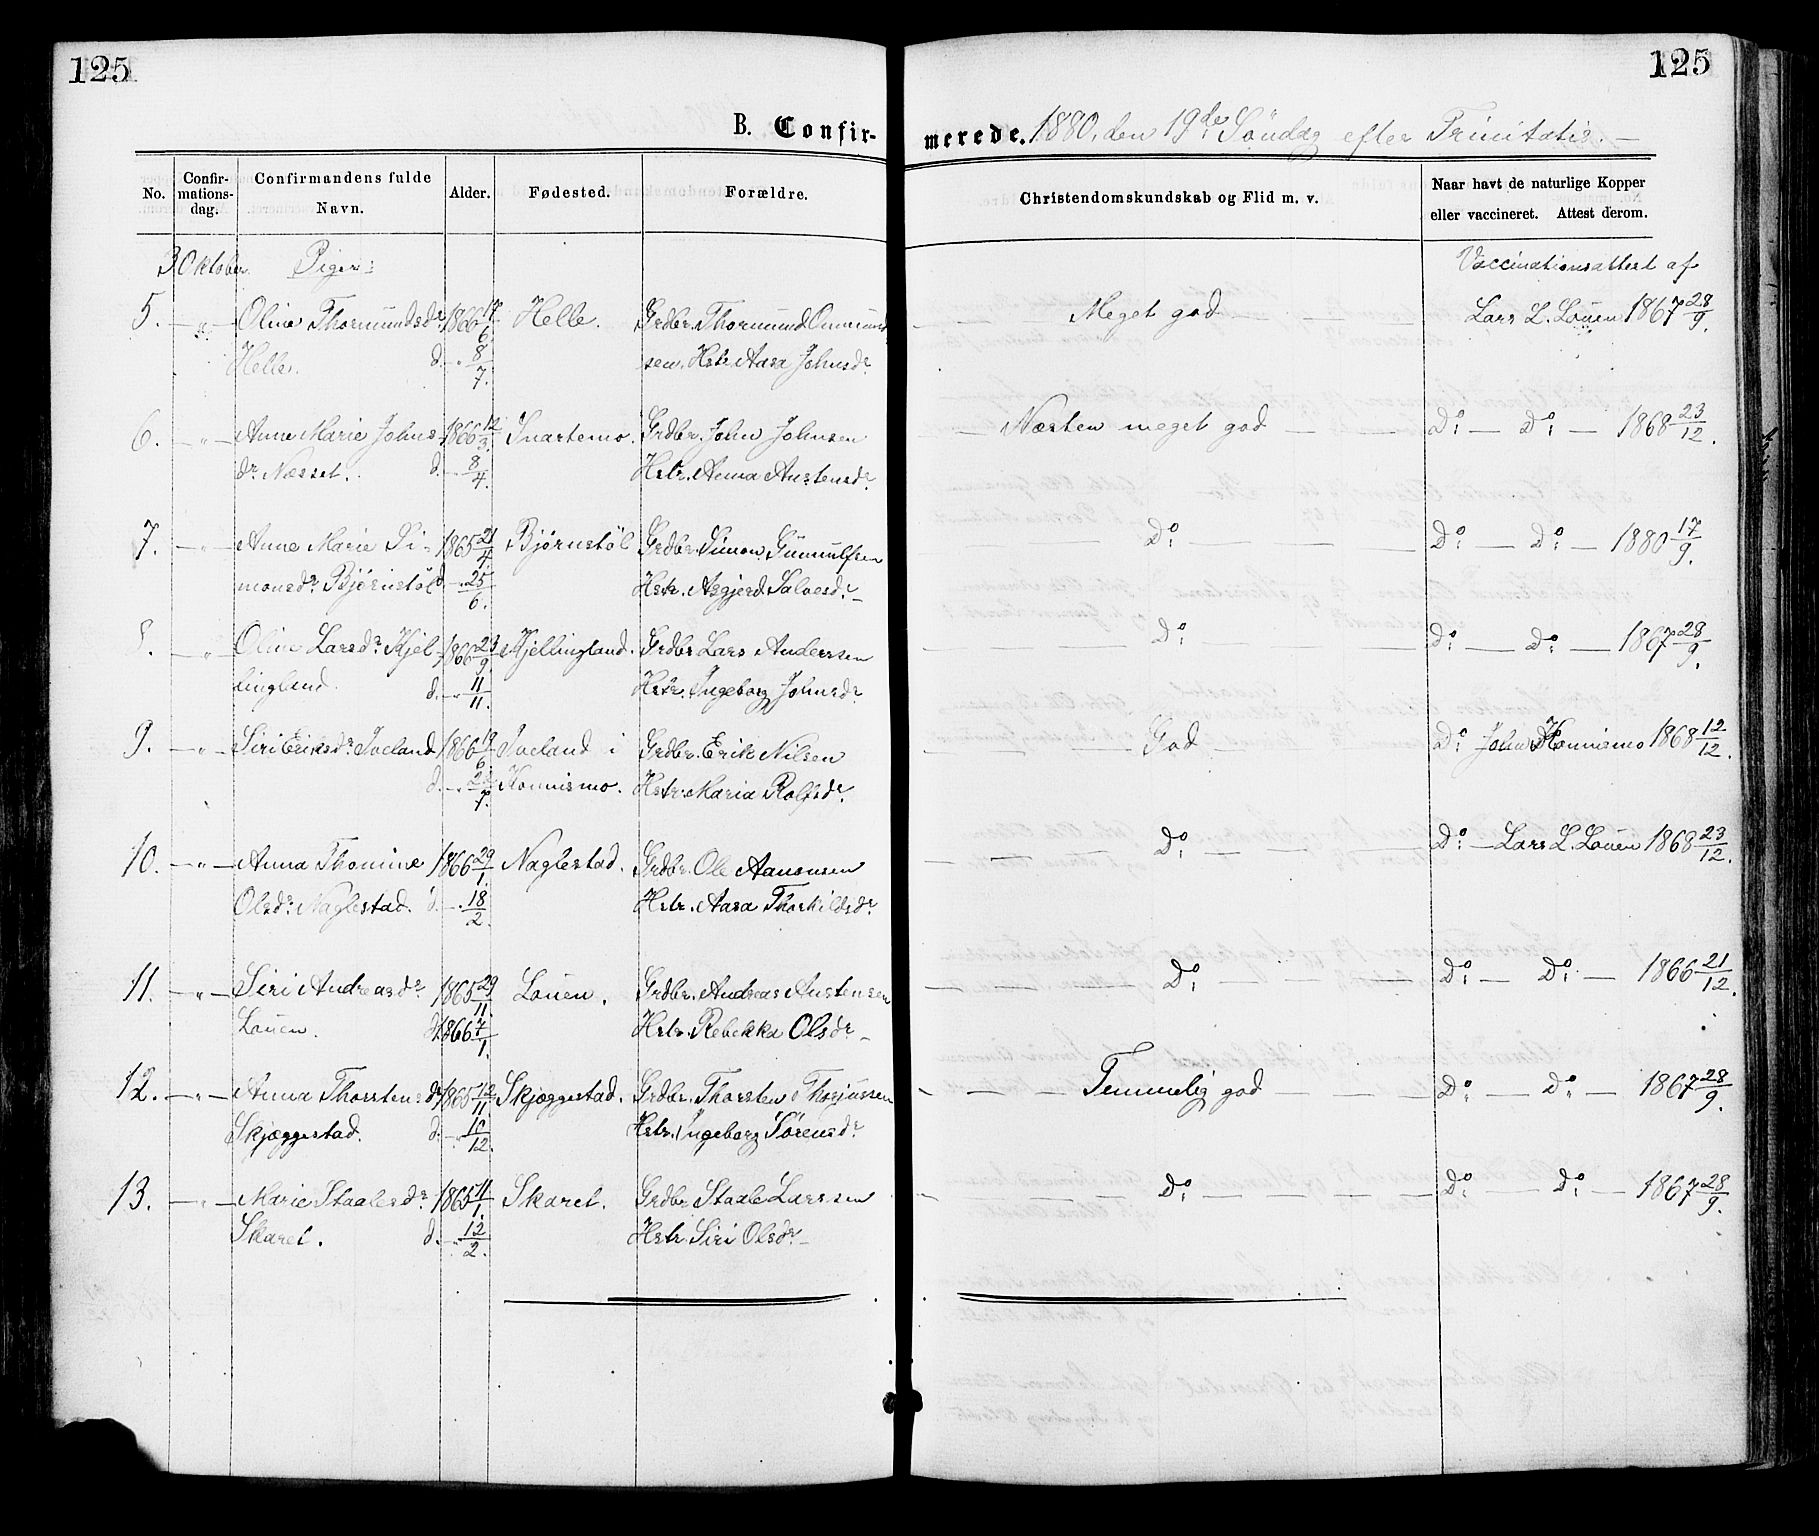 125
125
B. Confir-
merede. 1880, den 19de Søndag efter Trinitatis.
No.
Confir-
mations-
dag.
Confirmandens fulde
Navn.
Alder.
Fødested.
Forældre.
Christendomskundskab og Flid m. v.
Naar havt de naturlige Kopper
eller vaccineret. Attest derom.
3 Oktober. Piger: Vaccinationsattest af
5. — " — Oline Thormundsdr 1866 17/6 Helle. Grdbr. Thormund Ommund — Meget god — Lars L. Louen 1867 28/9.
Helle. d. — " 8/7. sen. Hstr. Aasa Johnsdr
6. — " — Anne Marie Johns- 1866 12/3. Snartemo. Grdbr. John Johnsen — Næsten meget god — Do — Do — 1868 23/12.
dr Næsset. d. — " 8/4. Hstr. Anna Austensdr
7. — " — Anne Marie Si- 1865 21/4. Bjørnstøl Grdbr. Simon Gunnulfsen — Do — Do — Do — 1880 17/9.
monsdr Bjørnstøl d. — " 25/6. Hstr. Asgjerd Salvesdr —
8. — " — Oline Larsdr Kjel- 1866 23/9 Kjellingland. Grdbr Lars Anderssen — Do — Do — Do — 1867 28/9.
lingland. d. — " 11/11. Hstr. Ingeborg Johnsdr
9. — " — Siri Eriksdr Iveland 1866 19/6 Iveland i Grdbr. Erik Nilsen — God — Do John Konnismo 1868 12/12.
d. — Konnismo. Hstr. Maria Rolfsdr
10. — " — Anna Thomine 1866 29/1. Naglestad. Grdbr. Ole Aanonsen — Do — Do — Lars L. Louen 1868 23/12.
Olsdr Naglestad. d. — " 18/2. Hstr. Aasa Thorkildsdr
11. — " — Siri Andreasdr 1865 29/11. Louen. Grdbr. Andreas Austensen — Do — Do — Do — 1866 21/12.
Louen. d. 1866 7/1. Hstr. Rebekka Olsdr —
12. — " — Anna Thorstensdr 1865 12/11 Skjæggestad. Grdbr. Thorsten Thorjussen — Temmelig god — Do — Do — 1867 28/9.
Skjæggestad. d. — " 10/12. Hstr. Ingeborg Sørensdr
13. — " — Marie Staalesdr 1865 11/1. Skaret. Grdbr Staale Larssen — Do — Do — Do — 1867 28/9.
Skaret. d. — " 12/2. Hstr Siri Olsdr —